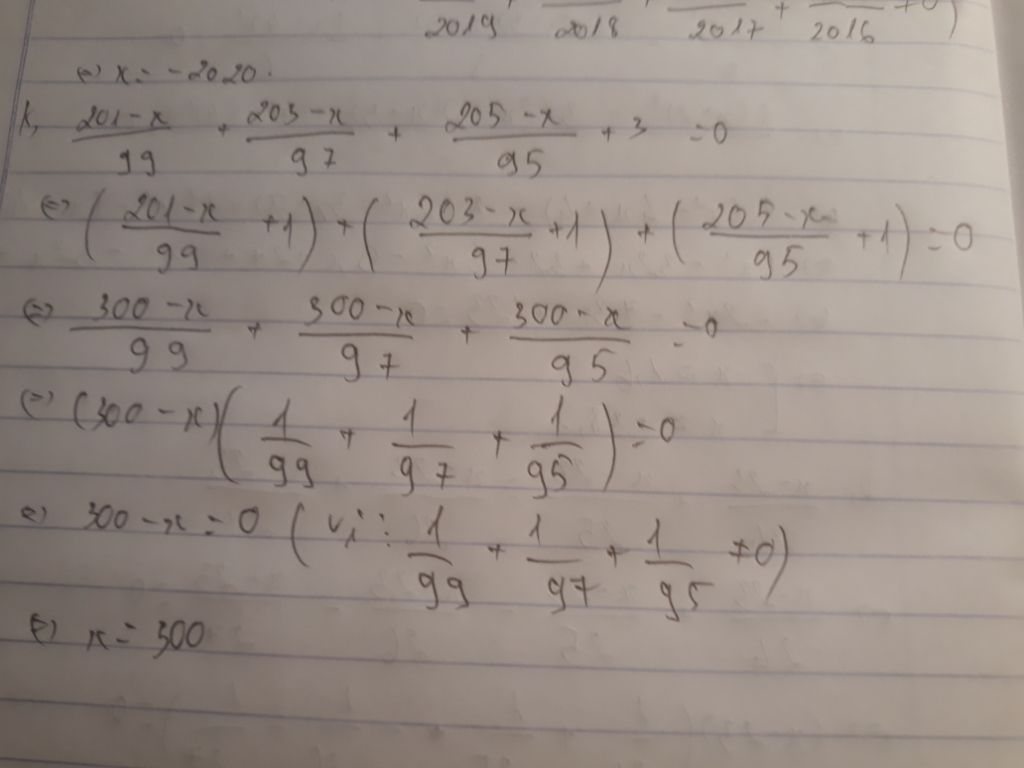 2019 2018 2017 + 2016 ≠0)
⇔ x = -2020.
k, (201-x)/99 + (203-x)/97 + (205-x)/95 + 3 = 0
⇔ ((201-x)/99 + 1) + ((203-x)/97 + 1) + ((205-x)/95 + 1) = 0
⇔ (300-x)/99 + (300-x)/97 + (300-x)/95 = 0
⇔ (300-x)(1/99 + 1/97 + 1/95) = 0
⇔ 300-x = 0 (vì: 1/99 + 1/97 + 1/95 ≠0)
⇔ x = 300